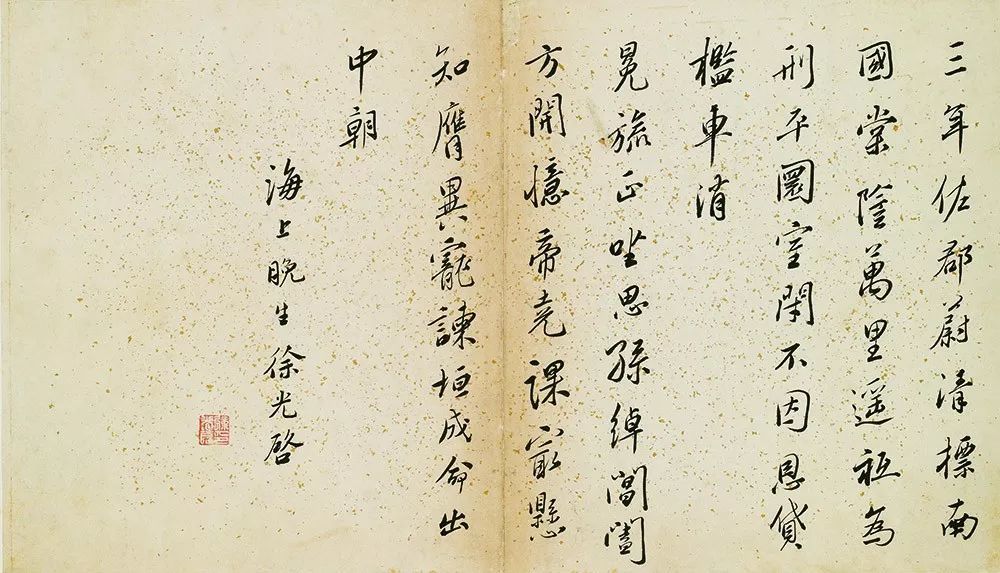 三年佐郡蔚清標南
國棠陰萬里遥祗為
刑平圜室閑不因恩貸
檻車消
冕旒正坐思孫綽閶闔
方開憶帝堯課最懸
知膺異寵諫垣成命出
中朝
海上晚生徐光啓